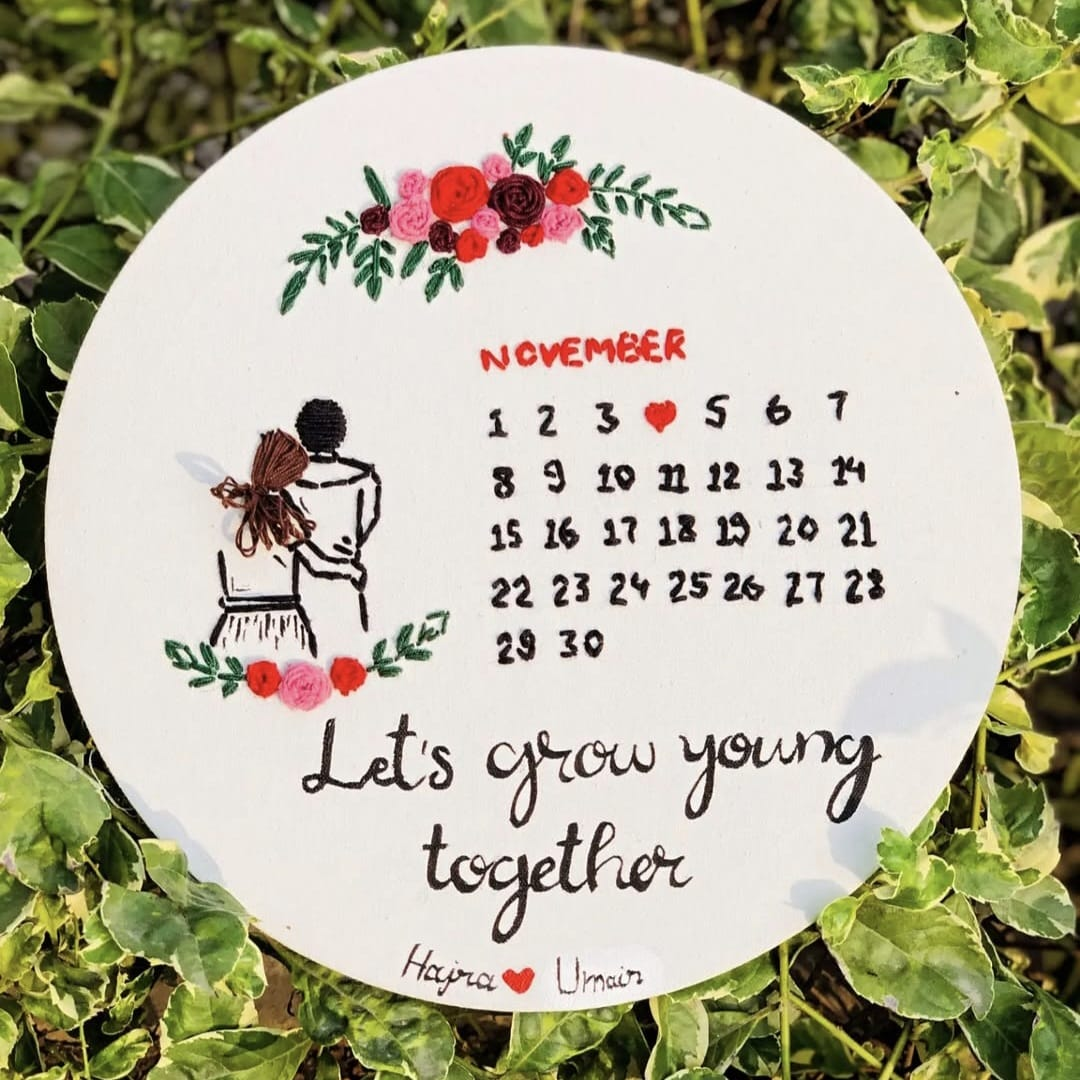 NOVEMBER
1 2 3 ❤ 5 6 7
8 9 10 11 12 13 14
15 16 17 18 19 20 21
22 23 24 25 26 27 28
29 30
Let's grow young
together
Hajra ❤ Umair